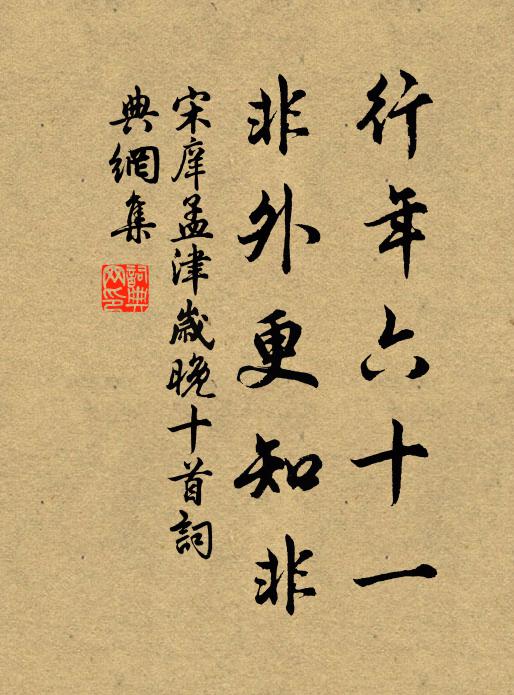 行年六十一
非外更知非
宋庠孟津歲晚十首詞
典網集
詞典
网印